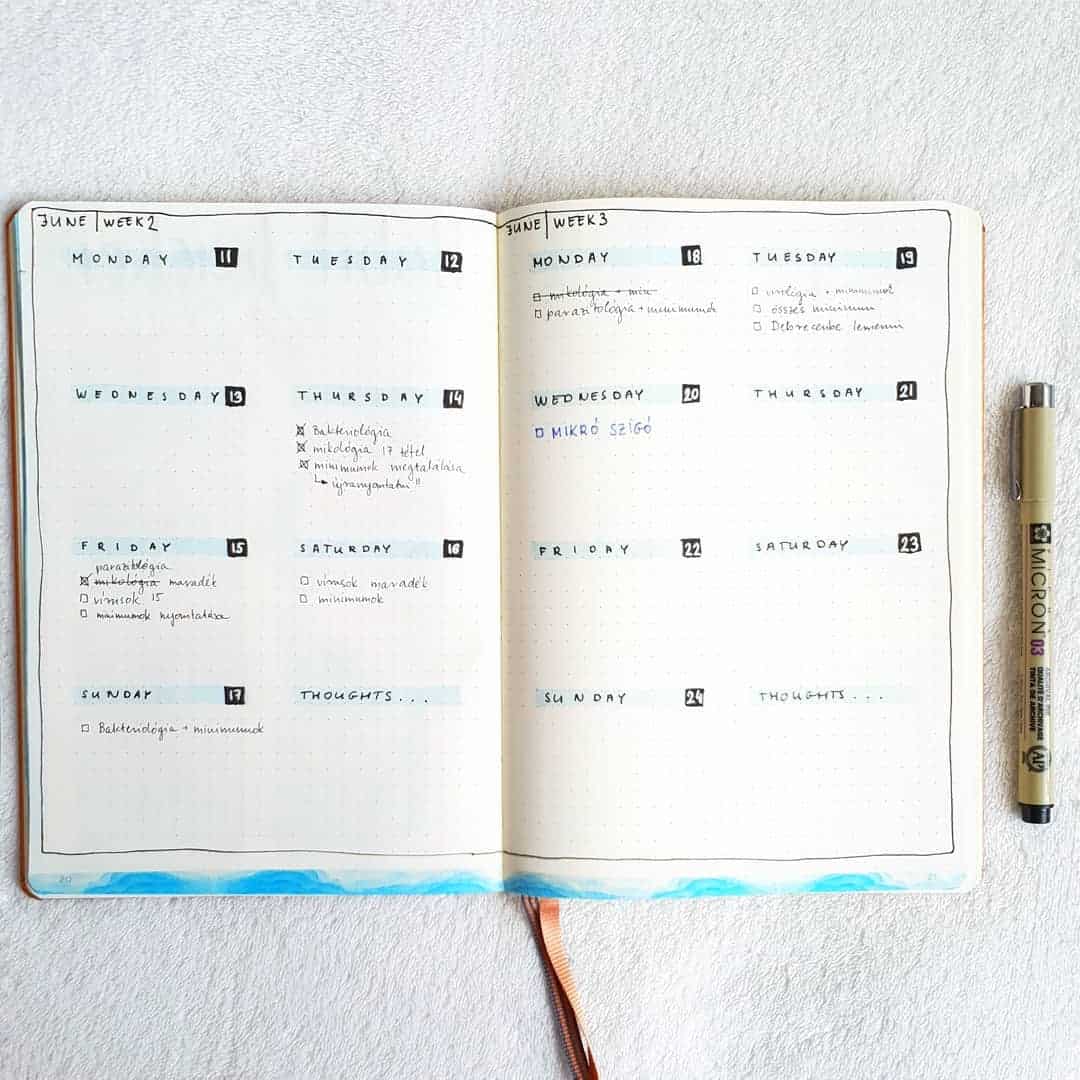 JUNE | WEEK 2
MONDAY 11
TUESDAY 12
WEDNESDAY 13
THURSDAY 14
Bakteriológia
mikológia 17 tétel
minimumok megtalálása
↳ újranyomtatni "
FRIDAY 15
parazitológia
mikológia maradék
vírusok 15
minimumok nyomtatása
SATURDAY 16
vírusok maradék
minimumok
SUNDAY 17
Bakteriológia + minimumok
THOUGHTS...
20
JUNE | WEEK 3
MONDAY 18
mikológia + min
parazitológia + minimumok
TUESDAY 19
virológia + minimumok
összes minimum
Debrecenbe lemenni
WEDNESDAY 20
MIKRÓ SZIGÓ
THURSDAY 21
FRIDAY 22
SATURDAY 23
SUNDAY 24
THOUGHTS...
21
MICRON 03
QUALITÉ D'ARCHIVAGE
TINTA DE ARCHIVE
AP